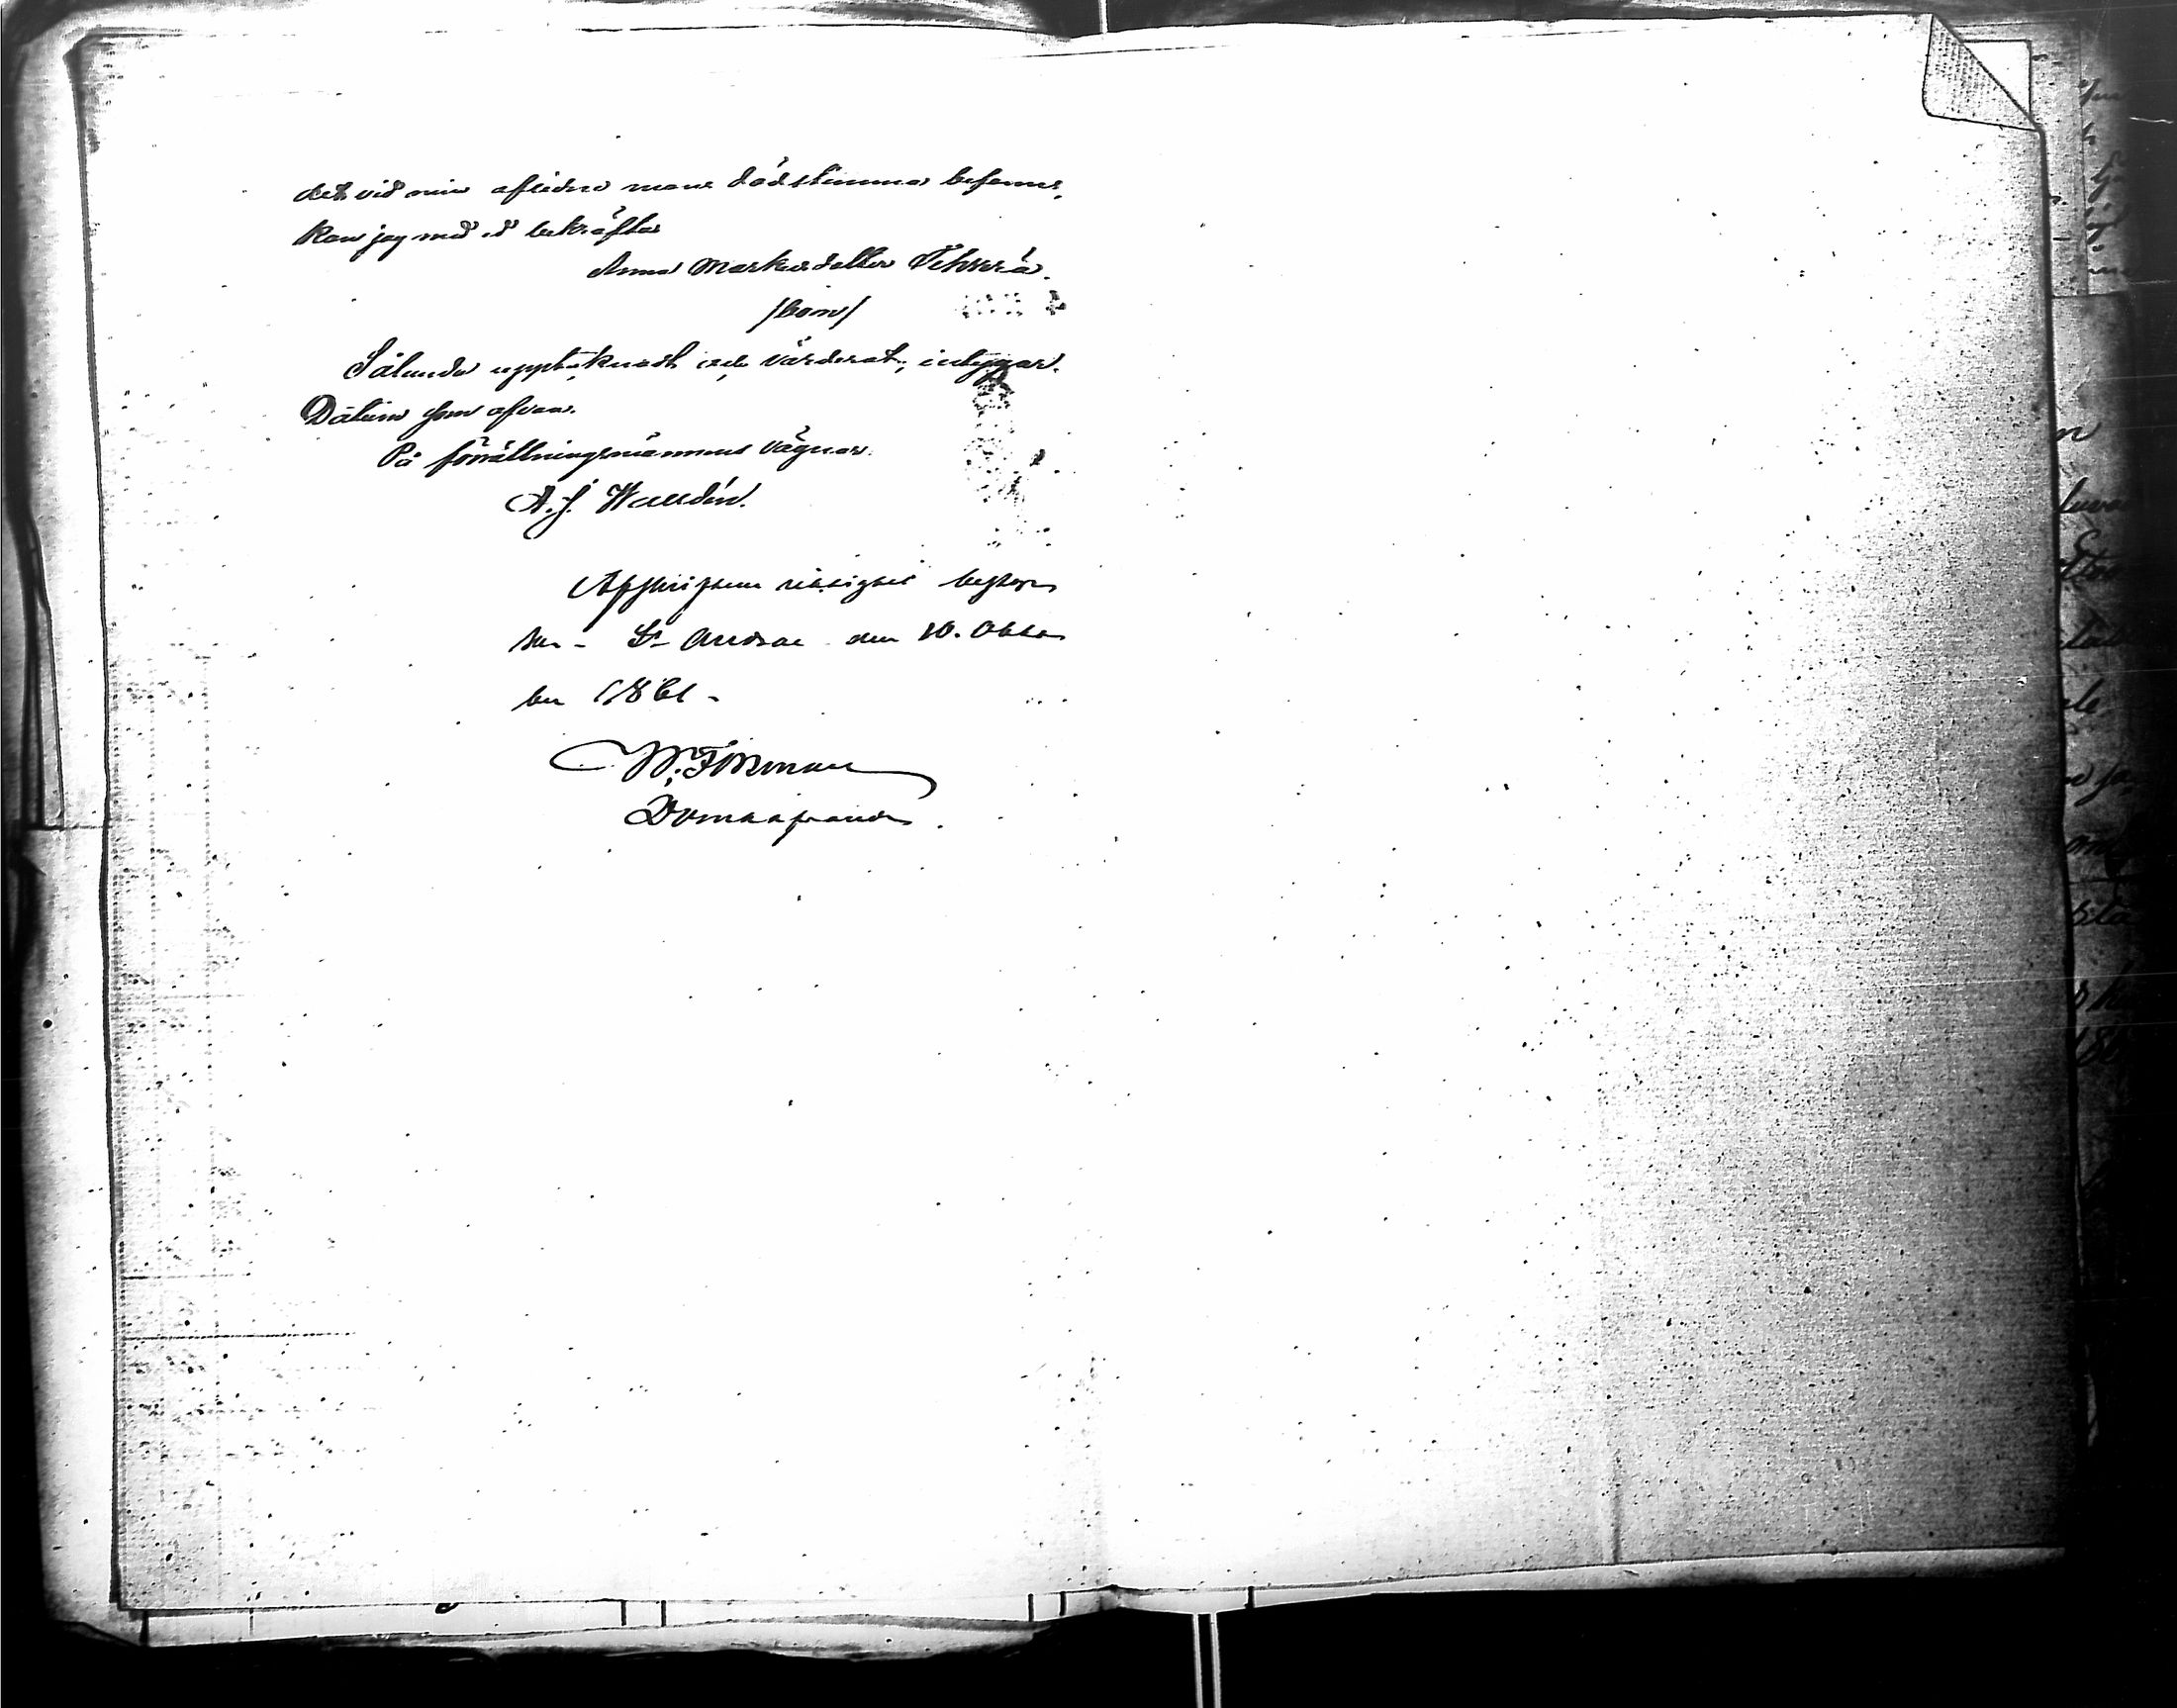 det vid min aflidne mans dödstimma befanns,
kan jag med ed bekräfta
Anna Markusdotter
/bom/
Sålunda upptäknadt och värderat, intygar.
Datum som ofvan.
På förrättningsmännens vägnar.
A. J. Wallden.
Afskriftens riktighet bestyr
kes - St Andreae den 10. Okto
ber 1861 -
W. Forsman
Domhafvande